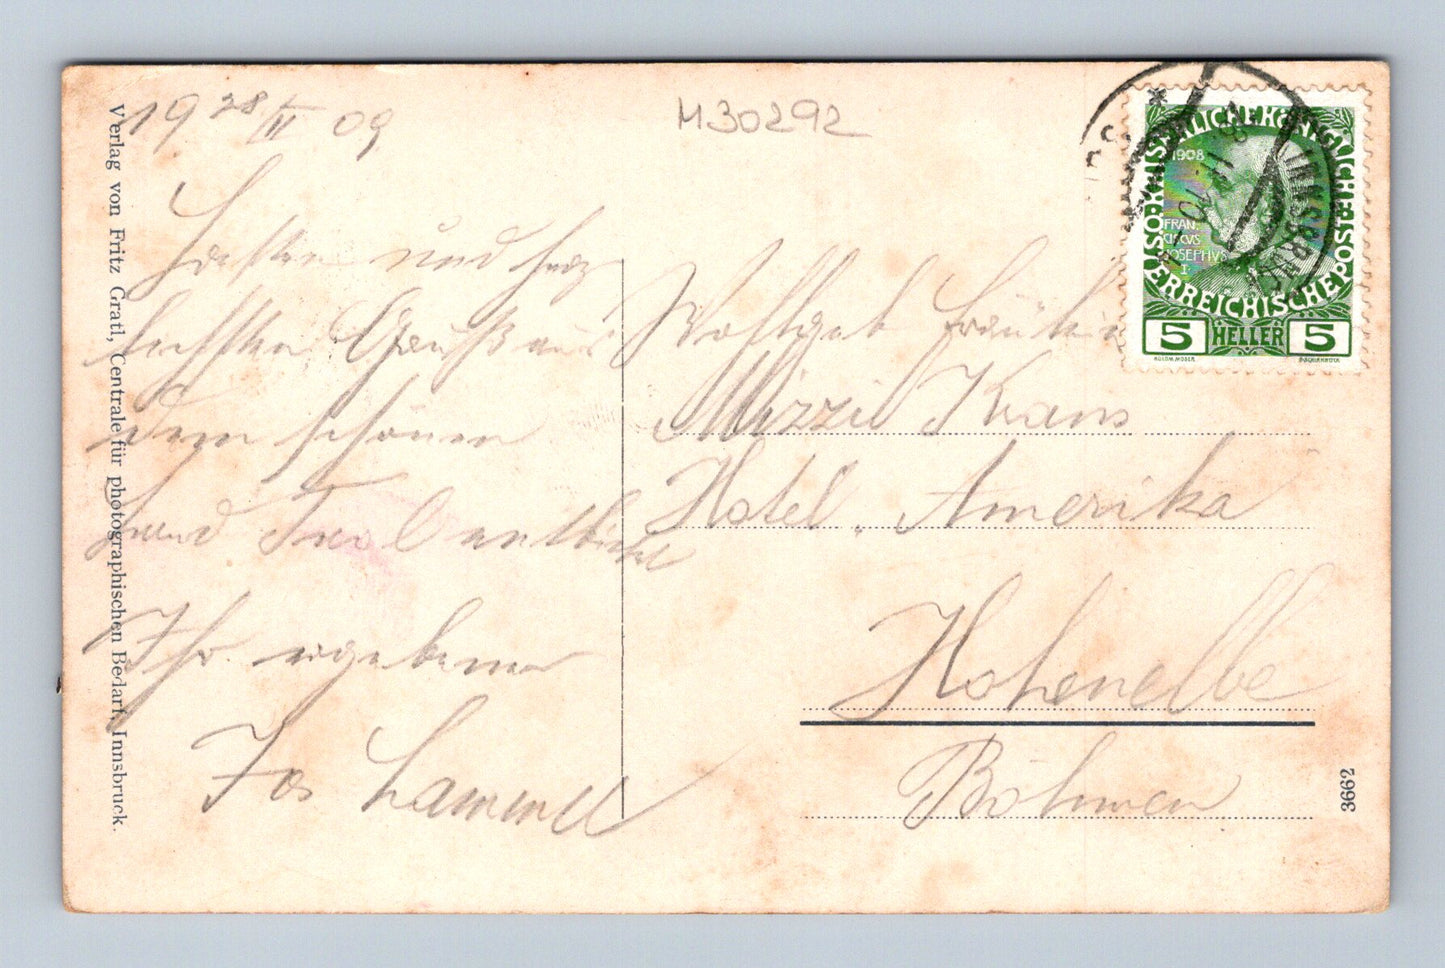 19 28/III 09
M30292
und herz
Gruß aus
dem schönen
Land Tirol
Ihr ergebener
Jos Lammel
Fräulein
Mizzi Kraus
Hotel Amerika
Hohenelbe
Böhmen
KAISERLICHE KÖNIGLICHE ÖSTERREICHISCHE POST
1908
FRAN
CISCVS
IOSEPHVS
I
5 HELLER 5
KOLOM.MOSER
F.SCHIRNBÖCK
INNSBRUCK
Verlag von Fritz Gratl, Centrale für photographischen Bedarf, Innsbruck.
3662